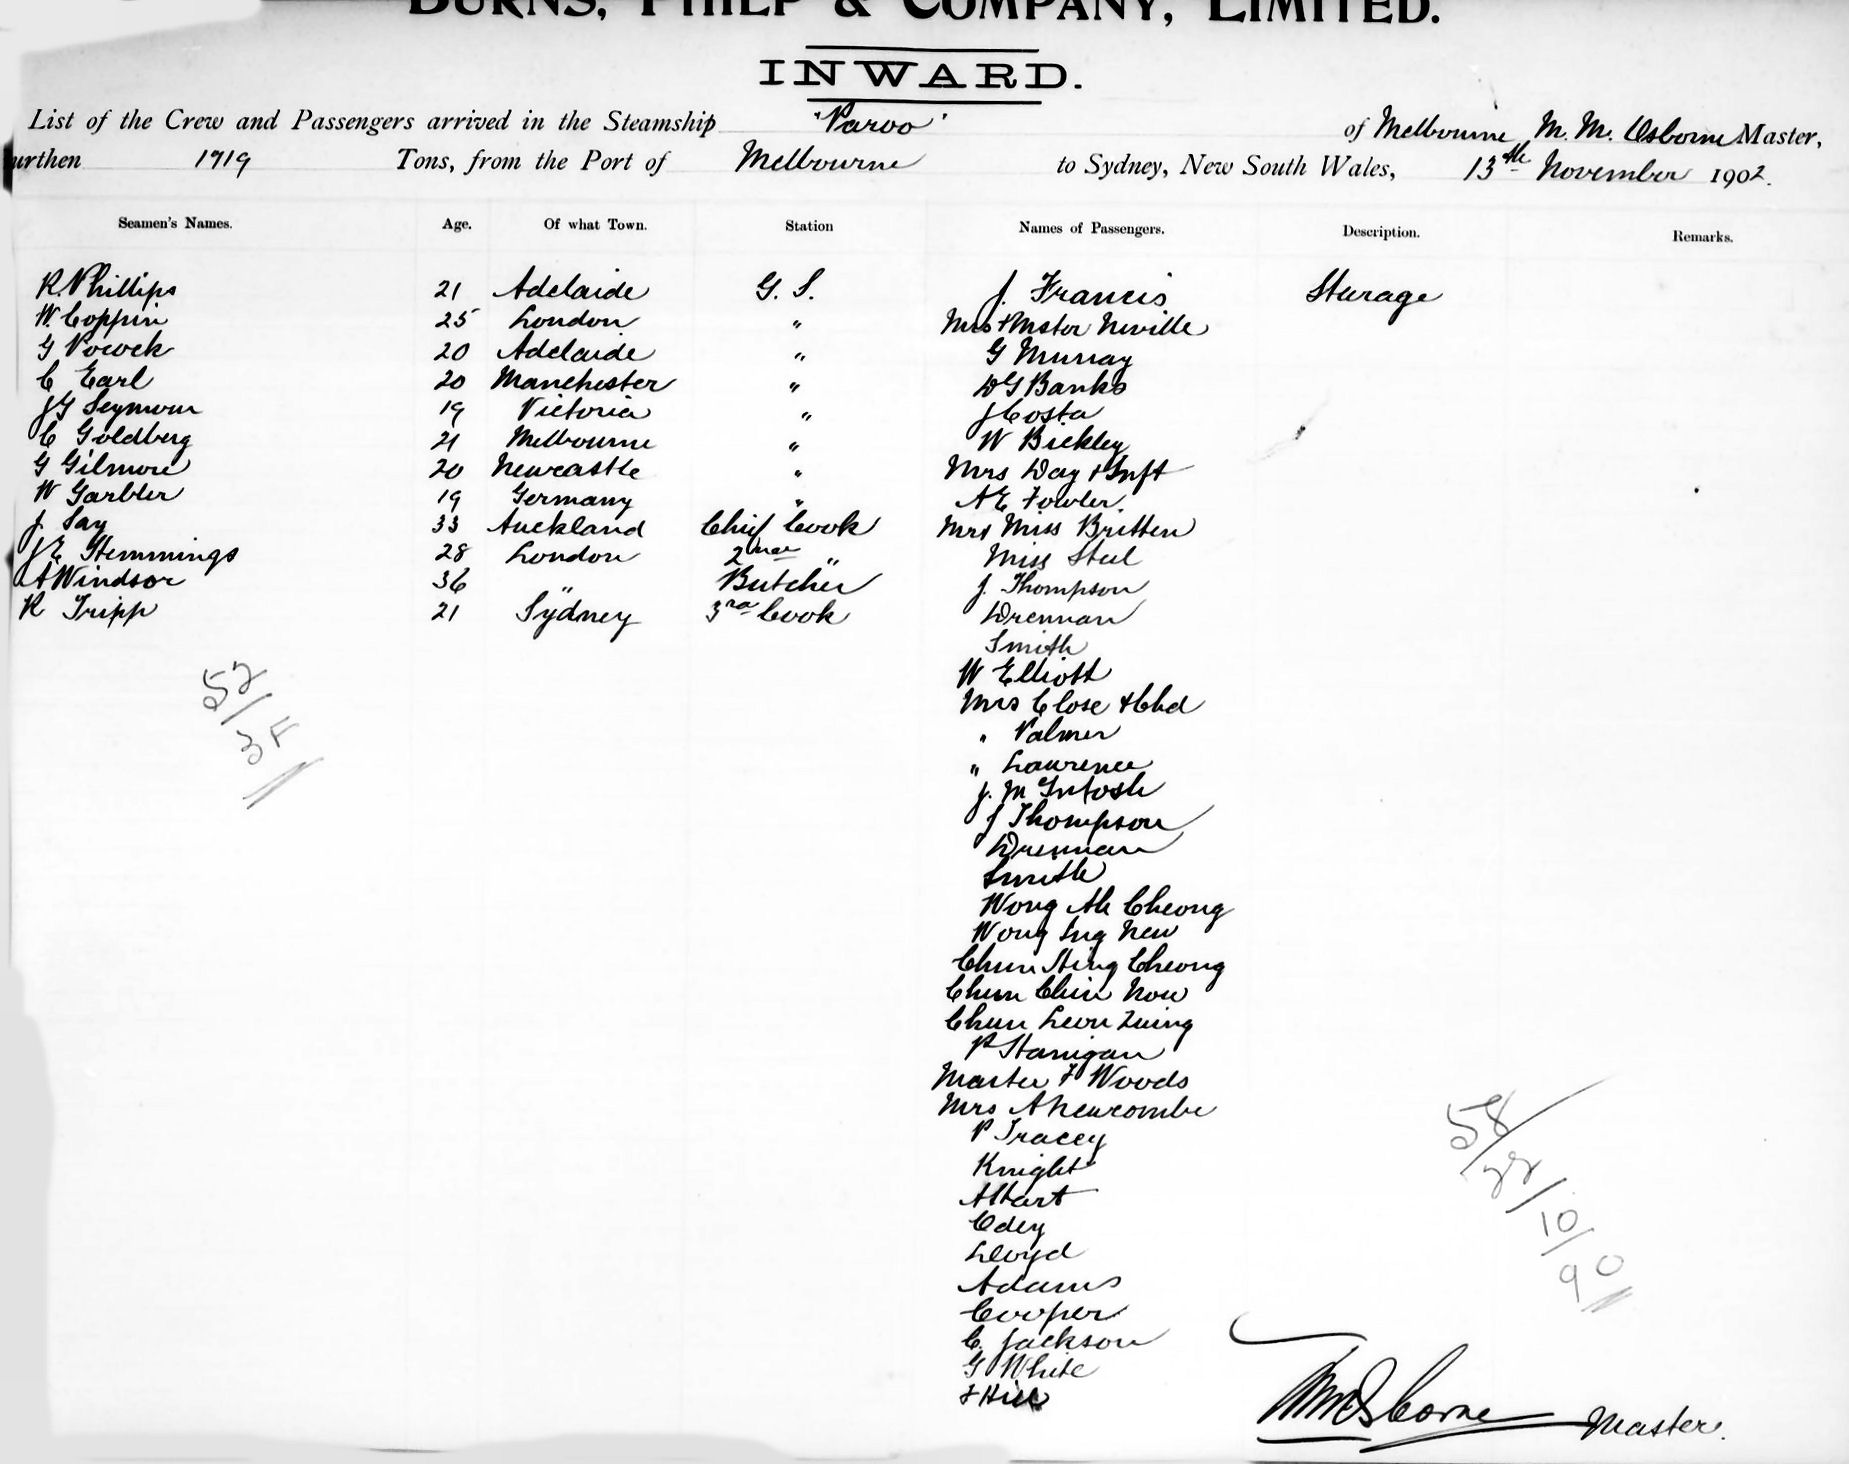 BURNS, PHILP & COMPANY, LIMITED.
INWARD.
List of the Crew and Passengers arrived in the Steamship 'Paroo' of Melbourne M. M. Osborne Master,
urthen 1719 Tons, from the Port of Melbourne to Sydney, New South Wales, 13th November 1902.
Seamen's Names. Age. Of what Town. Station Names of Passengers. Description. Remarks.
R. Phillips 21 Adelaide G. S. J. Francis Sturage
W. Coppin 25 London " Mrs + Mstor Neville
G Pocock 20 Adelaide " G Murray
C Earl 20 Manchester " D G Banks
J G Seymour 19 Victoria " J Costa
C Goldberg 21 Melbourne " W Bickley
G Gilmore 20 Newcastle " Mrs Day + Inft
W Garbler 19 Germany " A E Fowler.
J. Say 33 Auckland Chief Cook Mrs Miss Britten
J E Hemmings 28 London 2nd " Miss Steel
A Windsor 36 " Butcher J. Thompson
R Tripp 21 Sydney 3rd Cook Drennan
Smith
W Elliott
Mrs Close + Chd
" Palmer
" Laurence
J. McIntosh
J Thompson
Drennan
Smith
Wong Ah Cheong
Wong Sug New
Chun Hing Cheong
Chun Chin Now
Chun Leon
P Hanigan
Master F Woods
Mrs A Newcombe
P Tracey
Knight
Albart
Odey
Lloyd
Adams
Cooper
C. Jackson
G White
F Hill
52/
58/
22/
10/
90
MM Osborne Master.